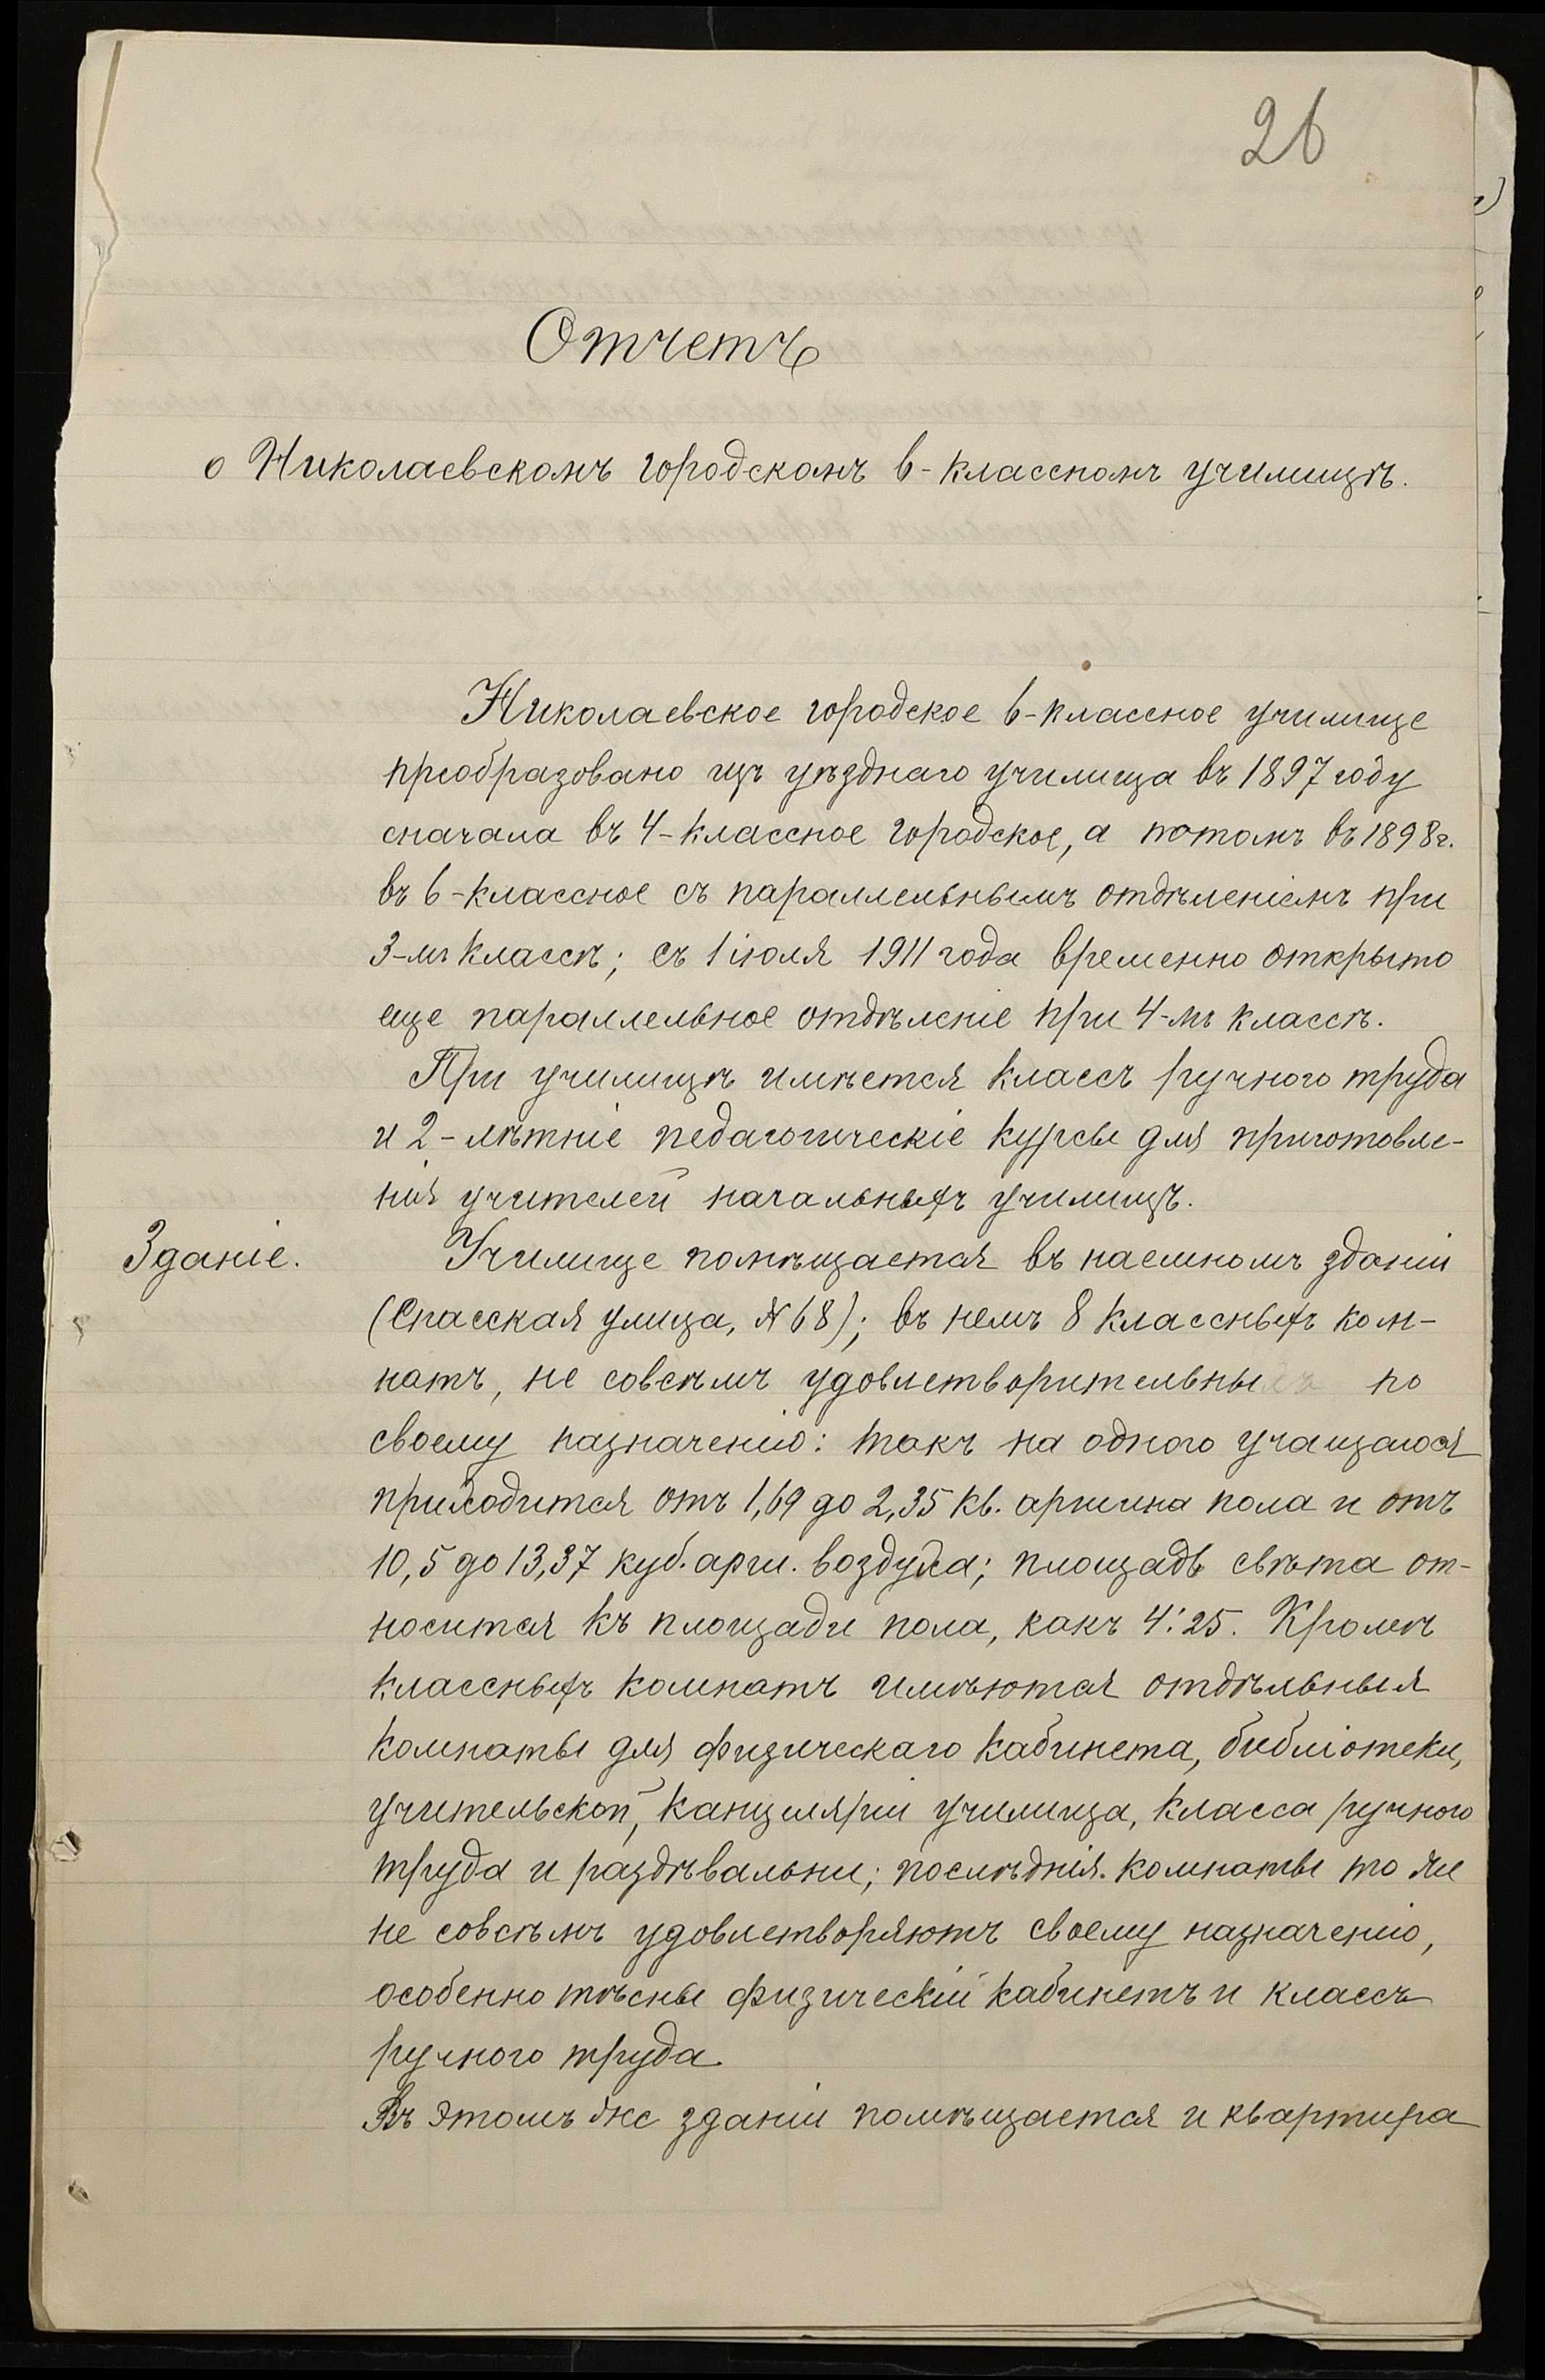 26
Отчетъ
о Николаевскомъ городскомъ 6-классномъ училищѣ.
Николаевское городское 6-классное училище
преобразовано изъ уѣзднаго училища въ 1897 году
сначала въ 4-классное городское, а потомъ въ 1898 г.
въ 6-классное съ параллельнымъ отдѣленіемъ при
3-мъ классѣ; съ 1 іюля 1911 года временно открыто
еще параллельное отдѣленіе при 4-мъ классѣ.
При училищѣ имѣется классъ ручного труда
и 2-лѣтніе педагогическіе курсы для приготовле-
нія учителей начальныхъ училищъ.
Зданіе. Училище помѣщается въ наемномъ зданіи
(Спасская улица, №68); въ немъ 8 классныхъ ком-
натъ, не совсѣмъ удовлетворительны по
своему назначенію: такъ на одного учащагося
приходится отъ 1,69 до 2,35 кв. аршина пола и отъ
10,5 до 13,37 куб. арш. воздуха; площадь свѣта от-
носится къ площади пола, какъ 4:25. Кромѣ
классныхъ комнатъ имѣются отдѣльныя
комнаты для физическаго кабинета, библіотеки,
учительской, канцеляріи училища, класса ручного
труда и раздѣвальни; послѣднія комнаты то же
не совсѣмъ удовлетворяютъ своему назначенію,
особенно тѣсны физическій кабинетъ и классъ
ручного труда.
Въ этомъ же зданіи помѣщается и квартира